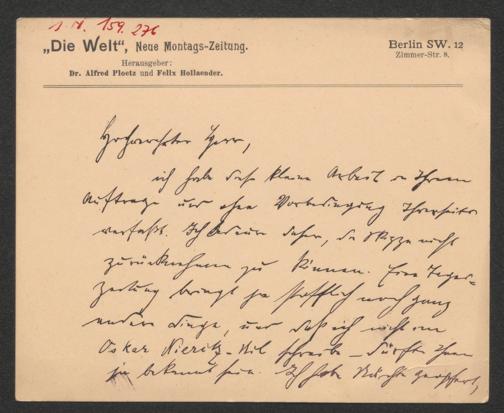 I. N. 159.276
„Die Welt“, Neue Montags-Zeitung.
Herausgeber:
Dr. Alfred Ploetz und Felix Hollaender.
Berlin SW. 12
Zimmer-Str. 8.
Hochverehrter Herr,
ich habe diese kleine Arbeit in Ihrem
Auftrage und ohne Vorbedingung Ihrerseits
verfaßt. Ich bedaure daher, die Skizze nicht
zurücknehmen zu können. Eine Tages-
zeitung bringt ja stofflich noch ganz
andere Dinge, und daß ich nicht im
Oskar Nieritz-Stil schreibe – dürfte Ihnen
ja bekannt sein. Ich habe Nächte geopfert,